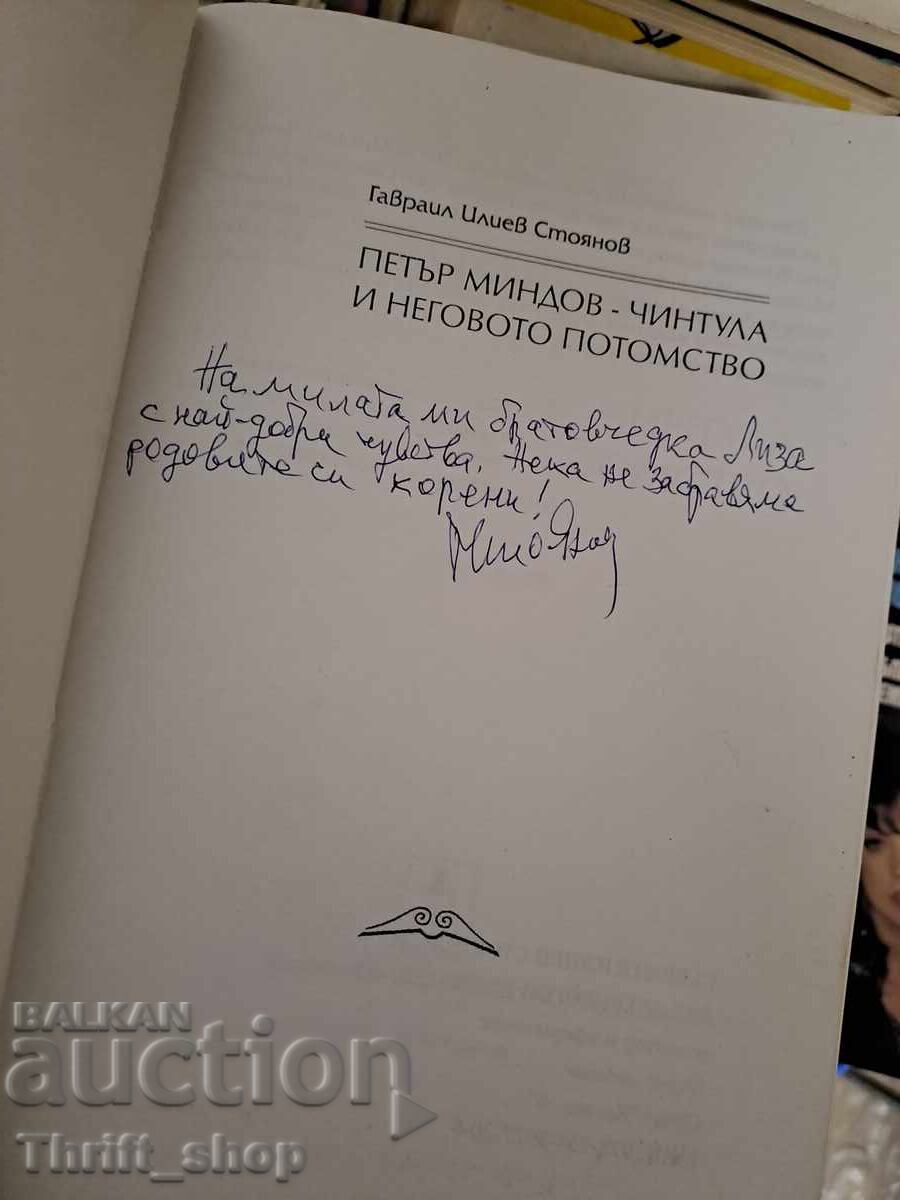 Гавраил Илиев Стоянов
ПЕТЪР МИНДОВ - ЧИНТУЛА
И НЕГОВОТО ПОТОМСТВО
На милата ми братовчедка Лиза
с най-добри чувства. Нека не забравяме
родовите си корени!
BALKAN
auction
Thrift_shop